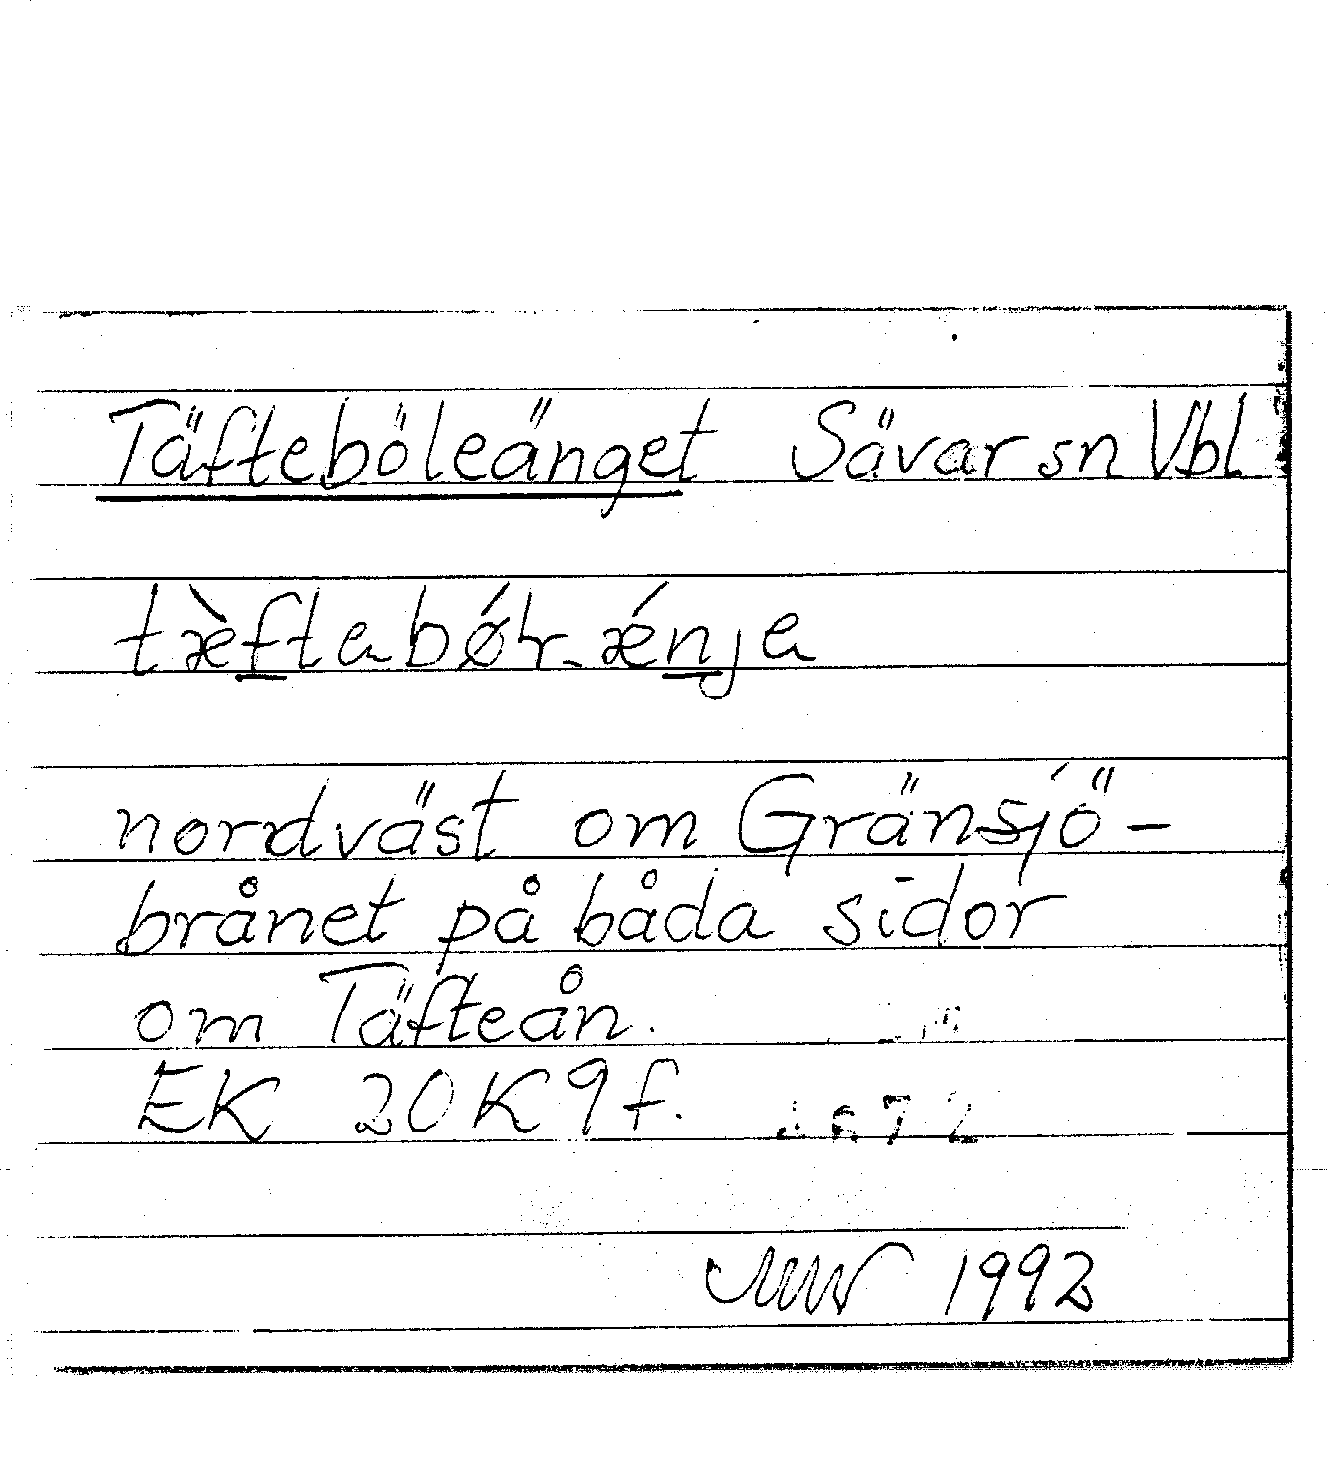 Täfteböleänget Sävar sn Vbl
nordväst om Gränsjö-
brånet på båda sidor
om Täfteån.
EK 20K9f.
1992